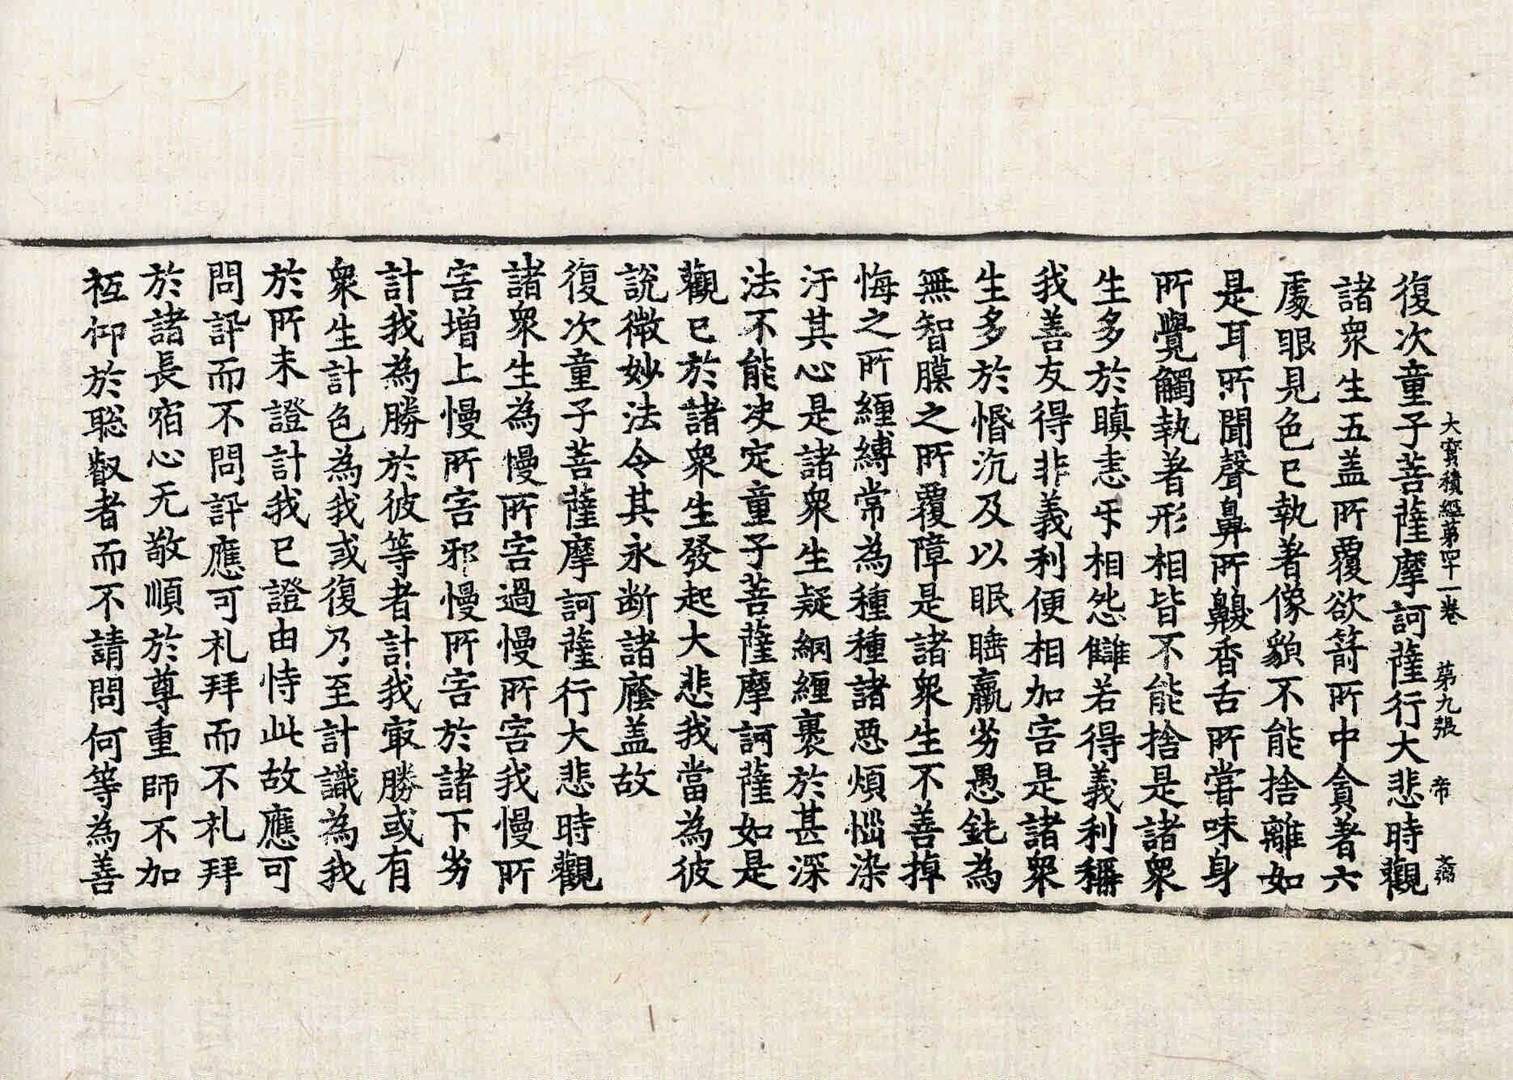 大寶積經第四十一卷　第九張　帝
復次童子菩薩摩訶薩行大悲時觀
諸衆生五盖所覆欲箭所中貪著六
處眼見色已執著像貌不能捨離如
是耳所聞聲鼻所齅香舌所甞味身
所覺觸執著形相皆不能捨是諸衆
生多於瞋恚𠄔相怨讎若得義利稱
我善友得非義利便相加害是諸衆
生多於惛沉及以眠睡羸劣愚鈍為
無智膜之所覆障是諸衆生不善掉
悔之所纏縛常為種種諸惡煩惱染
汙其心是諸衆生疑網纏裹於甚深
法不能決定童子菩薩摩訶薩如是
觀已於諸衆生發起大悲我當為彼
說微妙法令其永断諸癊盖故
復次童子菩薩摩訶薩行大悲時觀
諸衆生為慢所害過慢所害我慢所
害增上慢所害邪慢所害於諸下劣
計我為勝於彼等者計我㝡勝或有
衆生計色為我或復乃至計識為我
於所未證計我已證由恃此故應可
問訊而不問訊應可札拜而不札拜
於諸長宿心无敬順於尊重師不加
祗仰於聡叡者而不請問何等為善